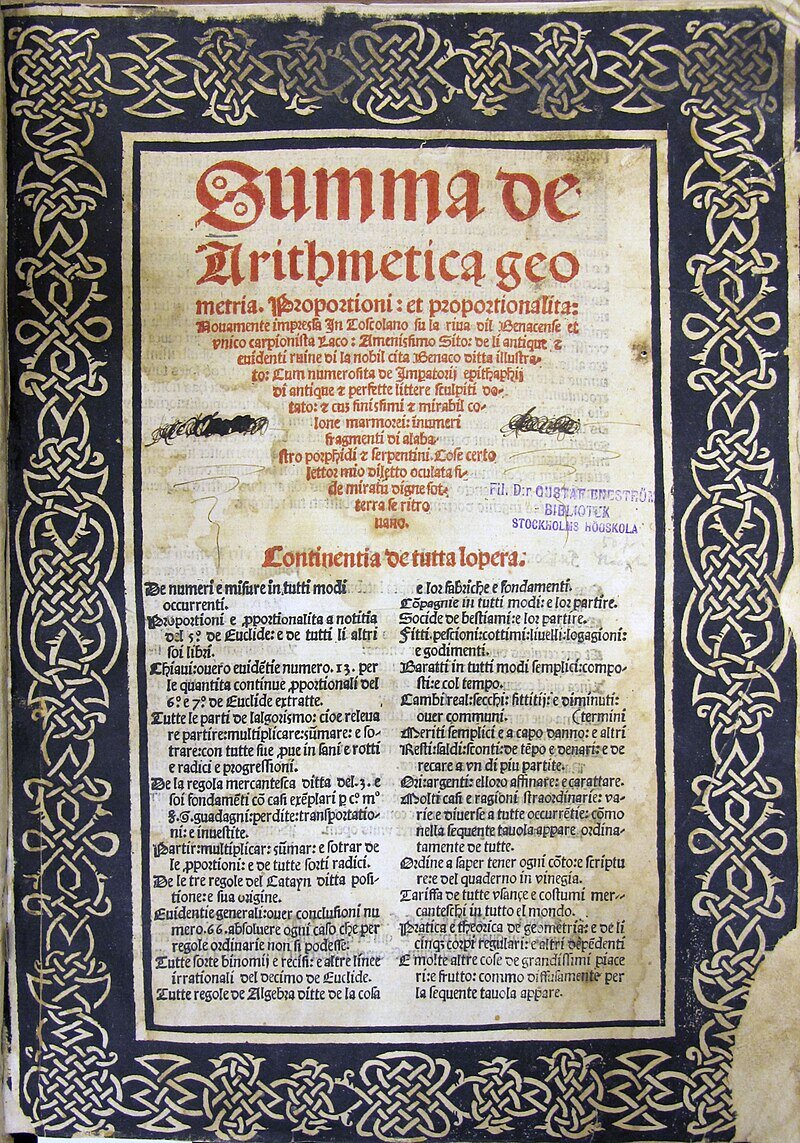 Summa de
Arithmetica geo
metria. Proportioni: et proportionalita:
Nouamente impressa In Toscolano su la riua dil Benacense et
vnico carpionista Laco: Amenissimo Sito: de li antique ⁊
euidenti ruine di la nobil cita Benaco ditta illustra-
to: Cum numerosita de Impatorij epithaphij
di antique ⁊ perfette littere sculpiti do-
tato: ⁊ cus finissimi ⁊ mirabil co-
lone marmorei: inumeri
fragmenti di alaba-
stro porphidi ⁊ serpentini. Cose certo
lettor mio diletto oculata fi-
de miratu digne sot-
terra se ritro
uano.
Fil. D:r GUSTAF ENESTRÖM
BIBLIOTEK
STOCKHOLMS HÖGSKOLA
Continentia de tutta lopera.
De numeri e misure in tutti modi
occurrenti.
Proportioni e ꝓportionalita a notitia
del 5º. de Euclide: e de tutti li altri
soi libri.
Chiaui: ouero euidētie numero. 13. per
le quantita continue ꝓportionali del
6º. e 7º. de Euclide extratte.
Tutte le parti de lalgorismo: cioe releua
re partire: multiplicare: sūmare: e so-
trare: con tutte sue ꝓue in sani e rotti
e radici e progressioni.
De la regola mercantesca ditta del .3. e
soi fondamēti cō casi exēplari ꝑ cº mº
8. G. guadagni: perdite: transportatio-
ni: e inuestite.
Partir: multiplicar: sūmar: e sotrar de
le ꝓportioni: e de tutte sorti radici.
De le tre regole del Catayn ditta posi-
tione: e sua origine.
Euidentie generali: ouer conclusioni nu
mero. 66. absoluere ogni caso che per
regole ordinarie non si podesse:
Tutte sorte binomij e recisi: e altre linee
irrationali del decimo de Euclide.
Tutte regole de Algebra ditte de la cosa
e lor fabriche e fondamenti.
Cōpagnie in tutti modi: e lor partire.
Socide de bestiami: e lor partire.
Fitti: pescioni: cottimi: liuelli: logagioni:
e godimenti.
Baratti in tutti modi semplici: compo-
sti: e col tempo.
Cambi real: secchi: fittitij: e diminuti:
ouer communi. (termini
Meriti semplici e a capo danno: e altri
Resti: saldi: sconti: de tēpo e denari: e de
recare a vn di piu partite.
Ori: argenti: e lloro affinare: e carattare.
Molti casi e ragioni straordinarie: va-
rie e diuerse a tutte occurrētie: cōmo
nella sequente tauola appare ordina-
tamente de tutte.
Ordine a saper tener ogni cōto: e scriptu
re: e del quaderno in vinegia.
Tariffa de tutte vsançe e costumi mer-
canteschi in tutto el mondo.
Pratica e theorica de geometria: e de li
cinqꝫ corpi regulari: e altri dependenti
E molte altre cose de grandissimi piace
ri: e frutto: commo diffusamente per
la sequente tauola appare.